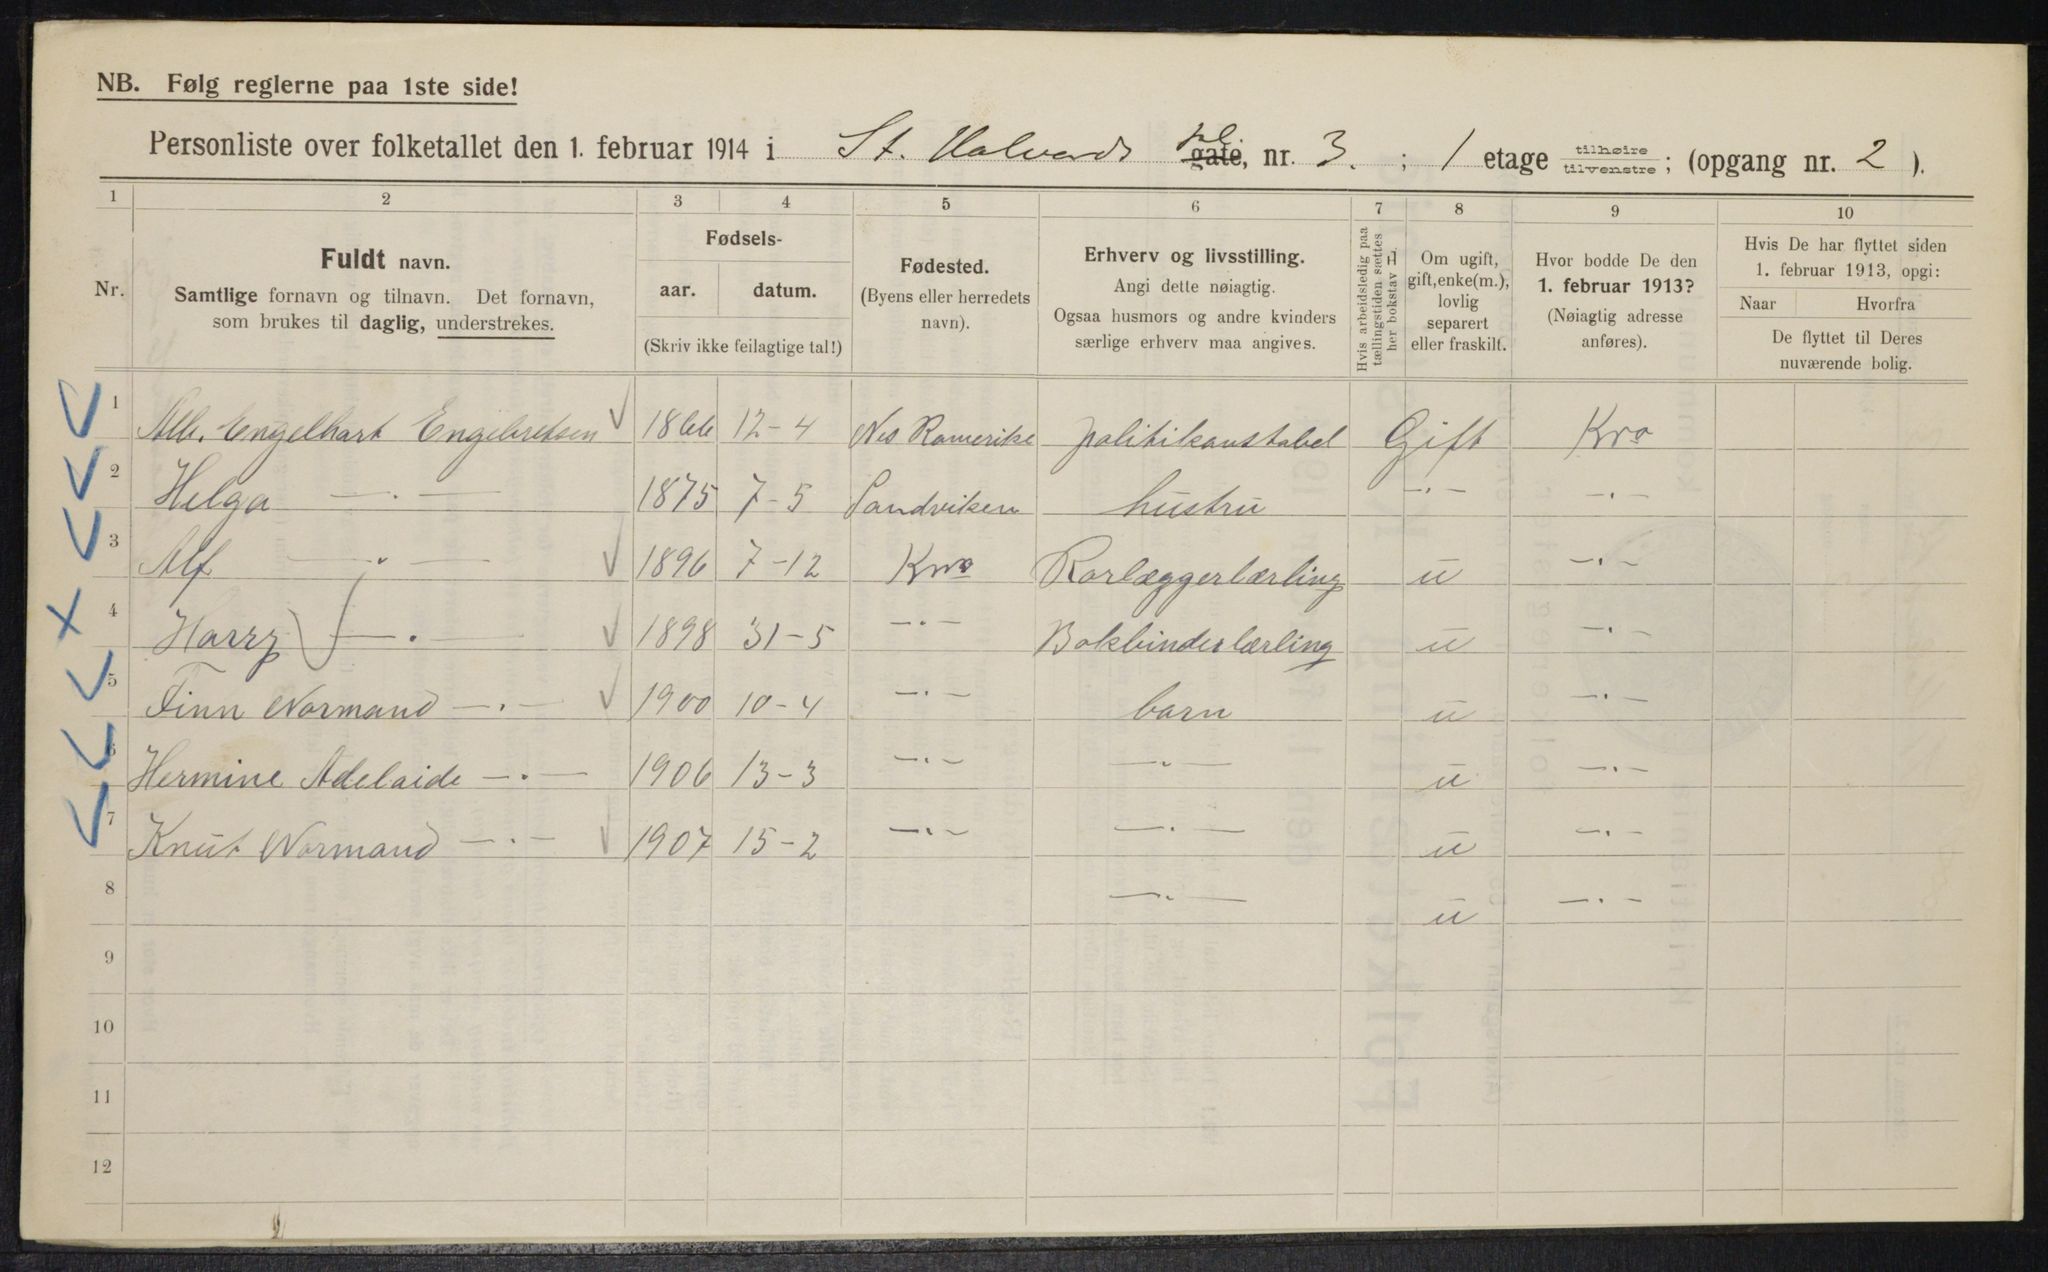 NB. Følg reglerne paa 1ste side!
Personliste over folketallet den 1. februar 1914 i St. Halvards pl. gate, nr. 3. ; 1 etage tilhøire tilvenstre; (opgang nr. 2 ).
1 2 3 4 5 6 7 8 9 10
Nr.
Fuldt navn.
Samtlige fornavn og tilnavn. Det fornavn,
som brukes til daglig, understrekes.
Fødsels-
aar. datum.
(Skriv ikke feilagtige tal!)
Fødested.
(Byens eller herredets
navn).
Erhverv og livsstilling.
Angi dette nøiagtig.
Ogsaa husmors og andre kvinders
særlige erhverv maa angives.
Hvis arbeidsledig paa
tællingstiden sættes
her bokstav L
Om ugift,
gift, enke(m.),
lovlig
separert
eller fraskilt.
Hvor bodde De den
1. februar 1913?
(Nøiagtig adresse
anføres).
Hvis De har flyttet siden
1. februar 1913, opgi:
Naar Hvorfra
De flyttet til Deres
nuværende bolig.
1 Alb. Engelhart Engebretsen 1866 12-4 Nes Romerike politikonstabel Gift Kra
2 Helga —.— 1875 7-5 Sandviken hustru —.— —.—
3 Alf —.— 1896 7-12 Kra Rørlæggerlærling u —.—
4 Harry —.— 1898 31-5 —.— Bokbinderlærling u —.—
5 Finn Normand —.— 1900 10-4 —.— barn u —.—
6 Hermine Adelaide —.— 1906 13-3 —.— —.— u —.—
7 Knut Normand —.— 1907 15-2 —.— —.— u —.—
8 —.— u —.—
9
10
11
12